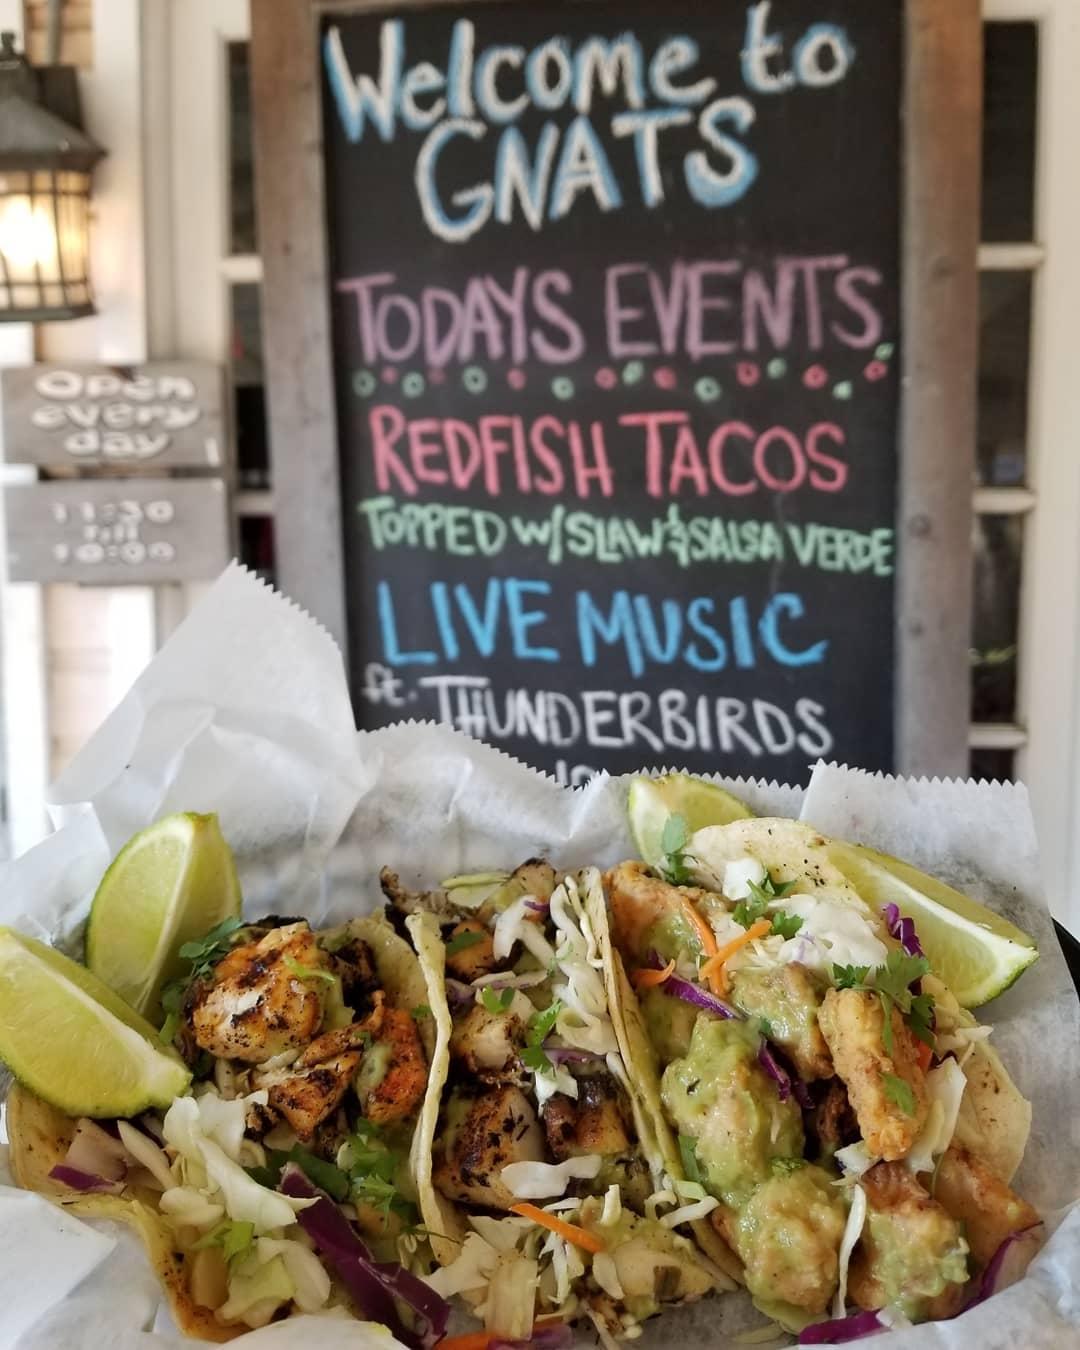 Welcome to
GNATS
TODAYS EVENTS
REDFISH TACOS
TOPPED W/SLAW & SALSA VERDE
LIVE MUSIC
ft. THUNDERBIRDS
Open
every
day
11:30
Till
10:00